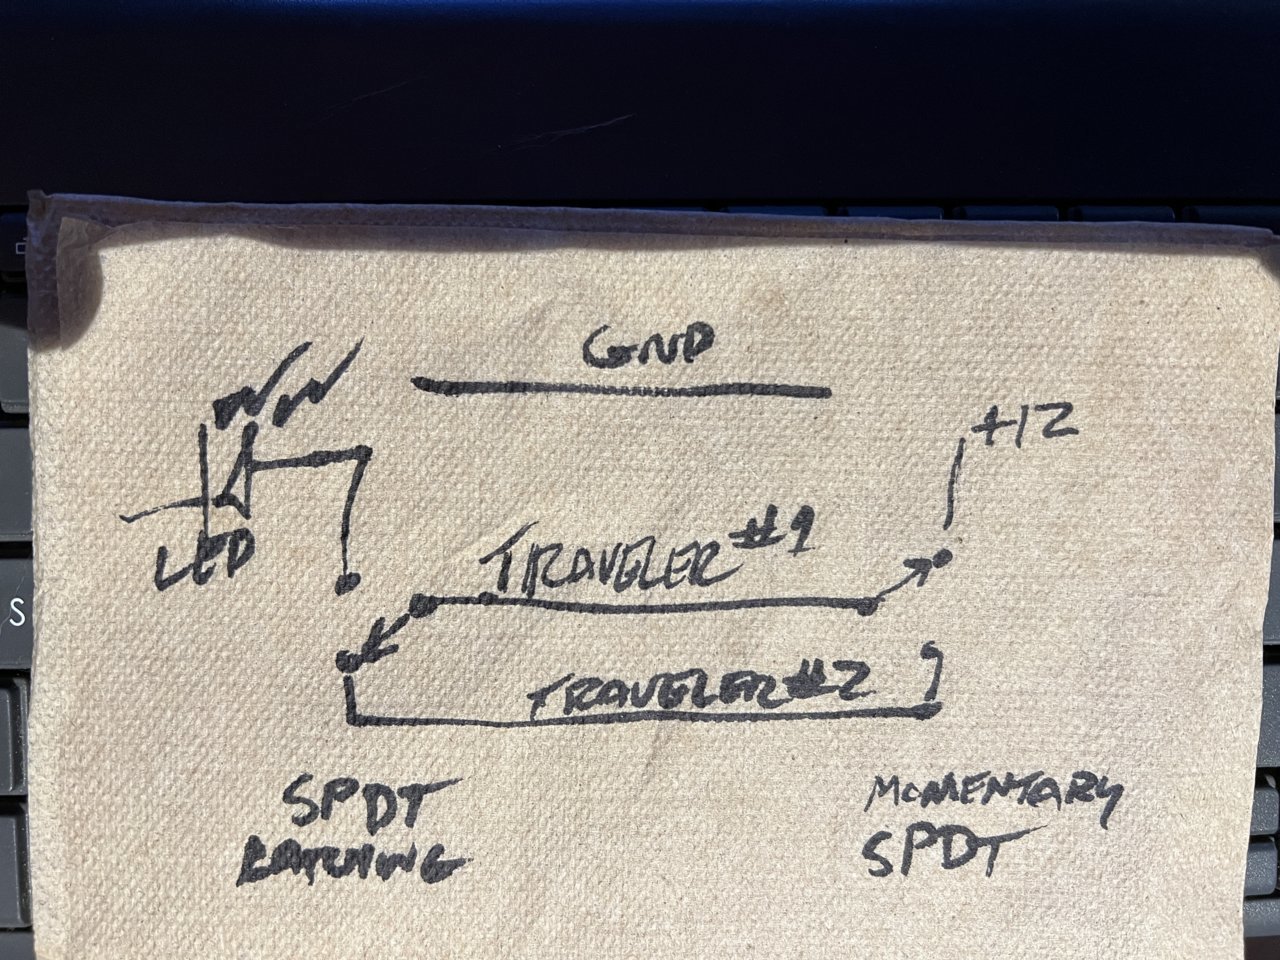 GND
+12
TRAVELER #1
LED
TRAVELER #2
SPDT
LATCHING
MOMENTARY
SPDT
S